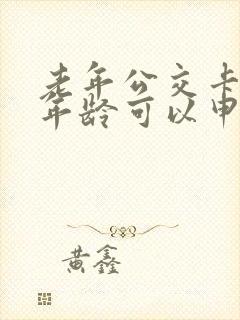 老年公交卡
年龄可以申
黄鑫